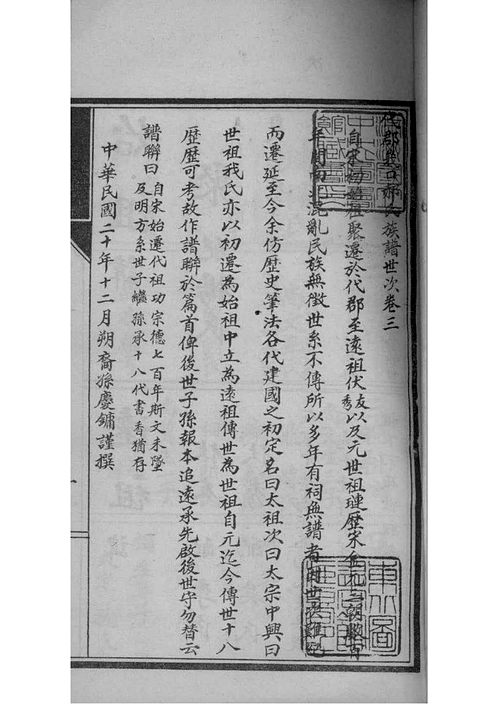 代郡 氏族譜世次卷三
自宋初始祖聚遷於代郡至遠祖伏友秀以及元世祖璉歷宋金元三朝數百
年間而 混亂民族無徵世系不傳所以多年有祠無譜者
而遷延至今余仿歷史筆法各代建國之初定名曰太祖次曰太宗中興曰
世祖我氏亦以初遷為始祖中立為遠祖傳世為世祖自元迄今傳世十八
歷歷可考故作譜聯於篇首俾後世子孫報本追遠承先啟後世守勿替云
譜聯曰 自宋始遷代祖功宗德七百年斯文未墜
及明方系世子繼孫承十八代書香猶存
中華民國二十年十二月朔裔孫慶鏞謹撰